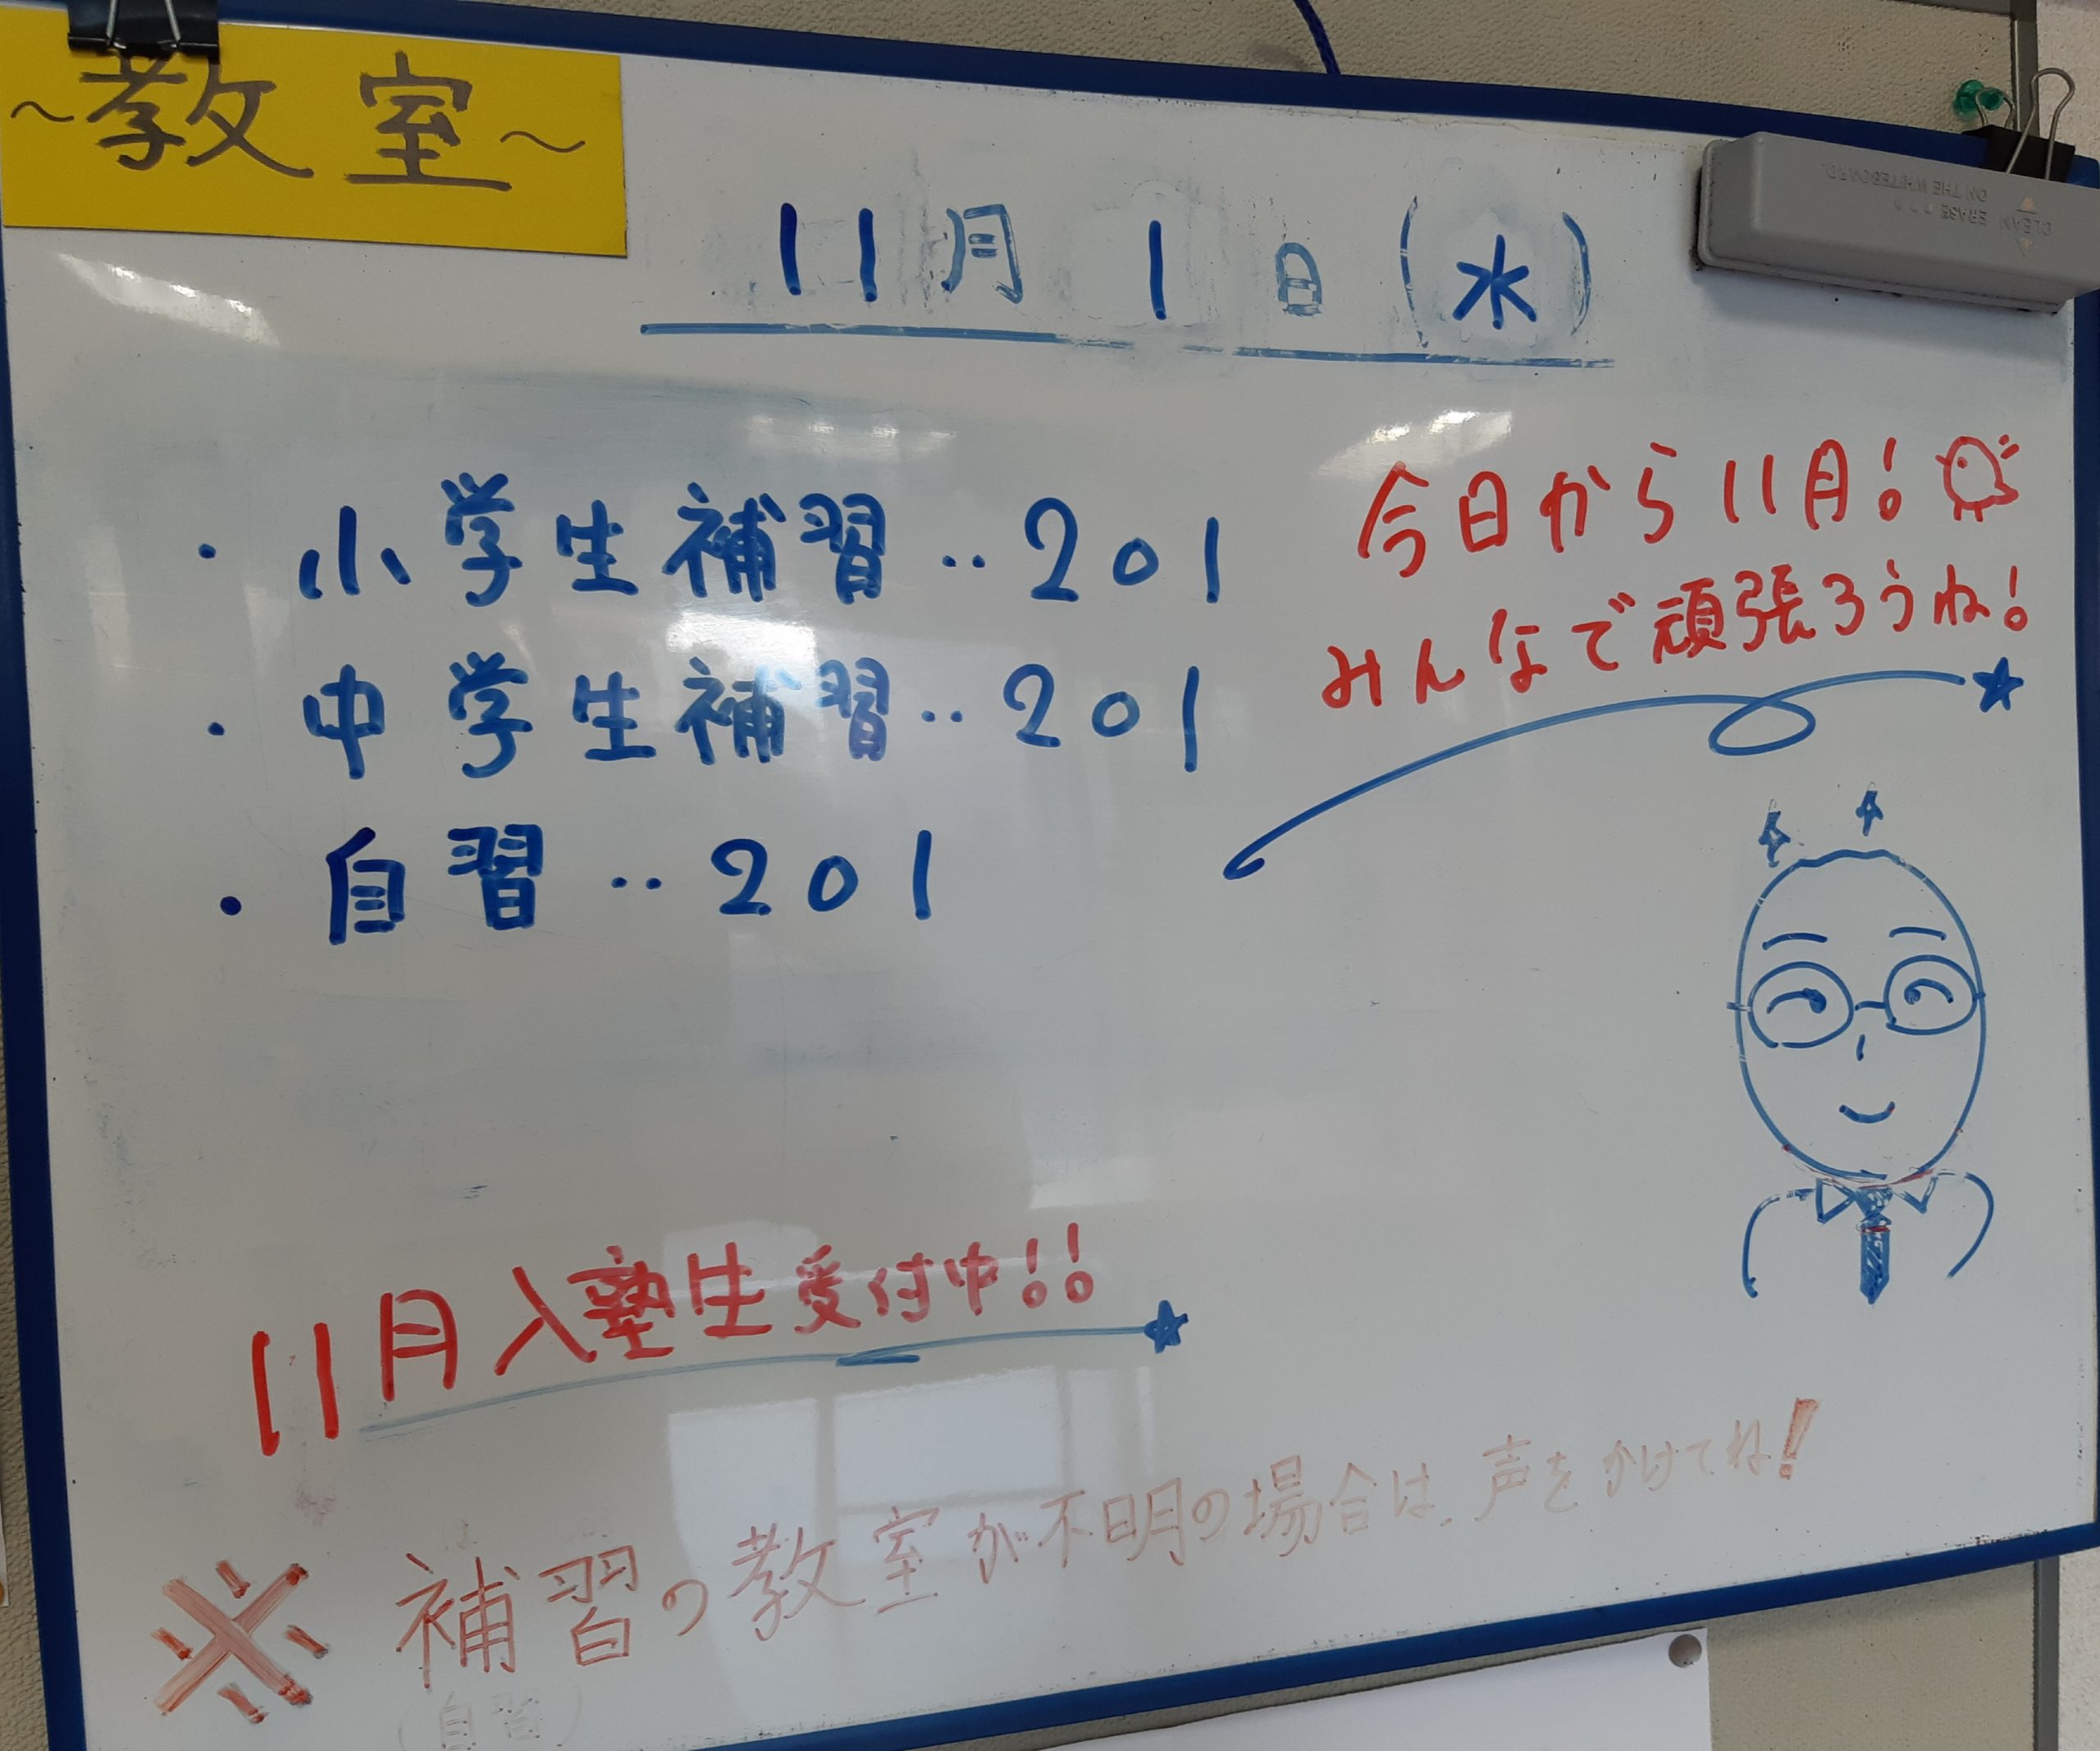 ~教室~
11月 1日(水)
・小学生補習‥201
・中学生補習‥201
・自習‥201
今日から11月!
みんなで頑張ろうね!
11月入塾生受付中!!
※ 補習の教室が不明の場合は、声をかけてね!
(自習)
CLEAN ERASE
ON THE WHITEBOARD.